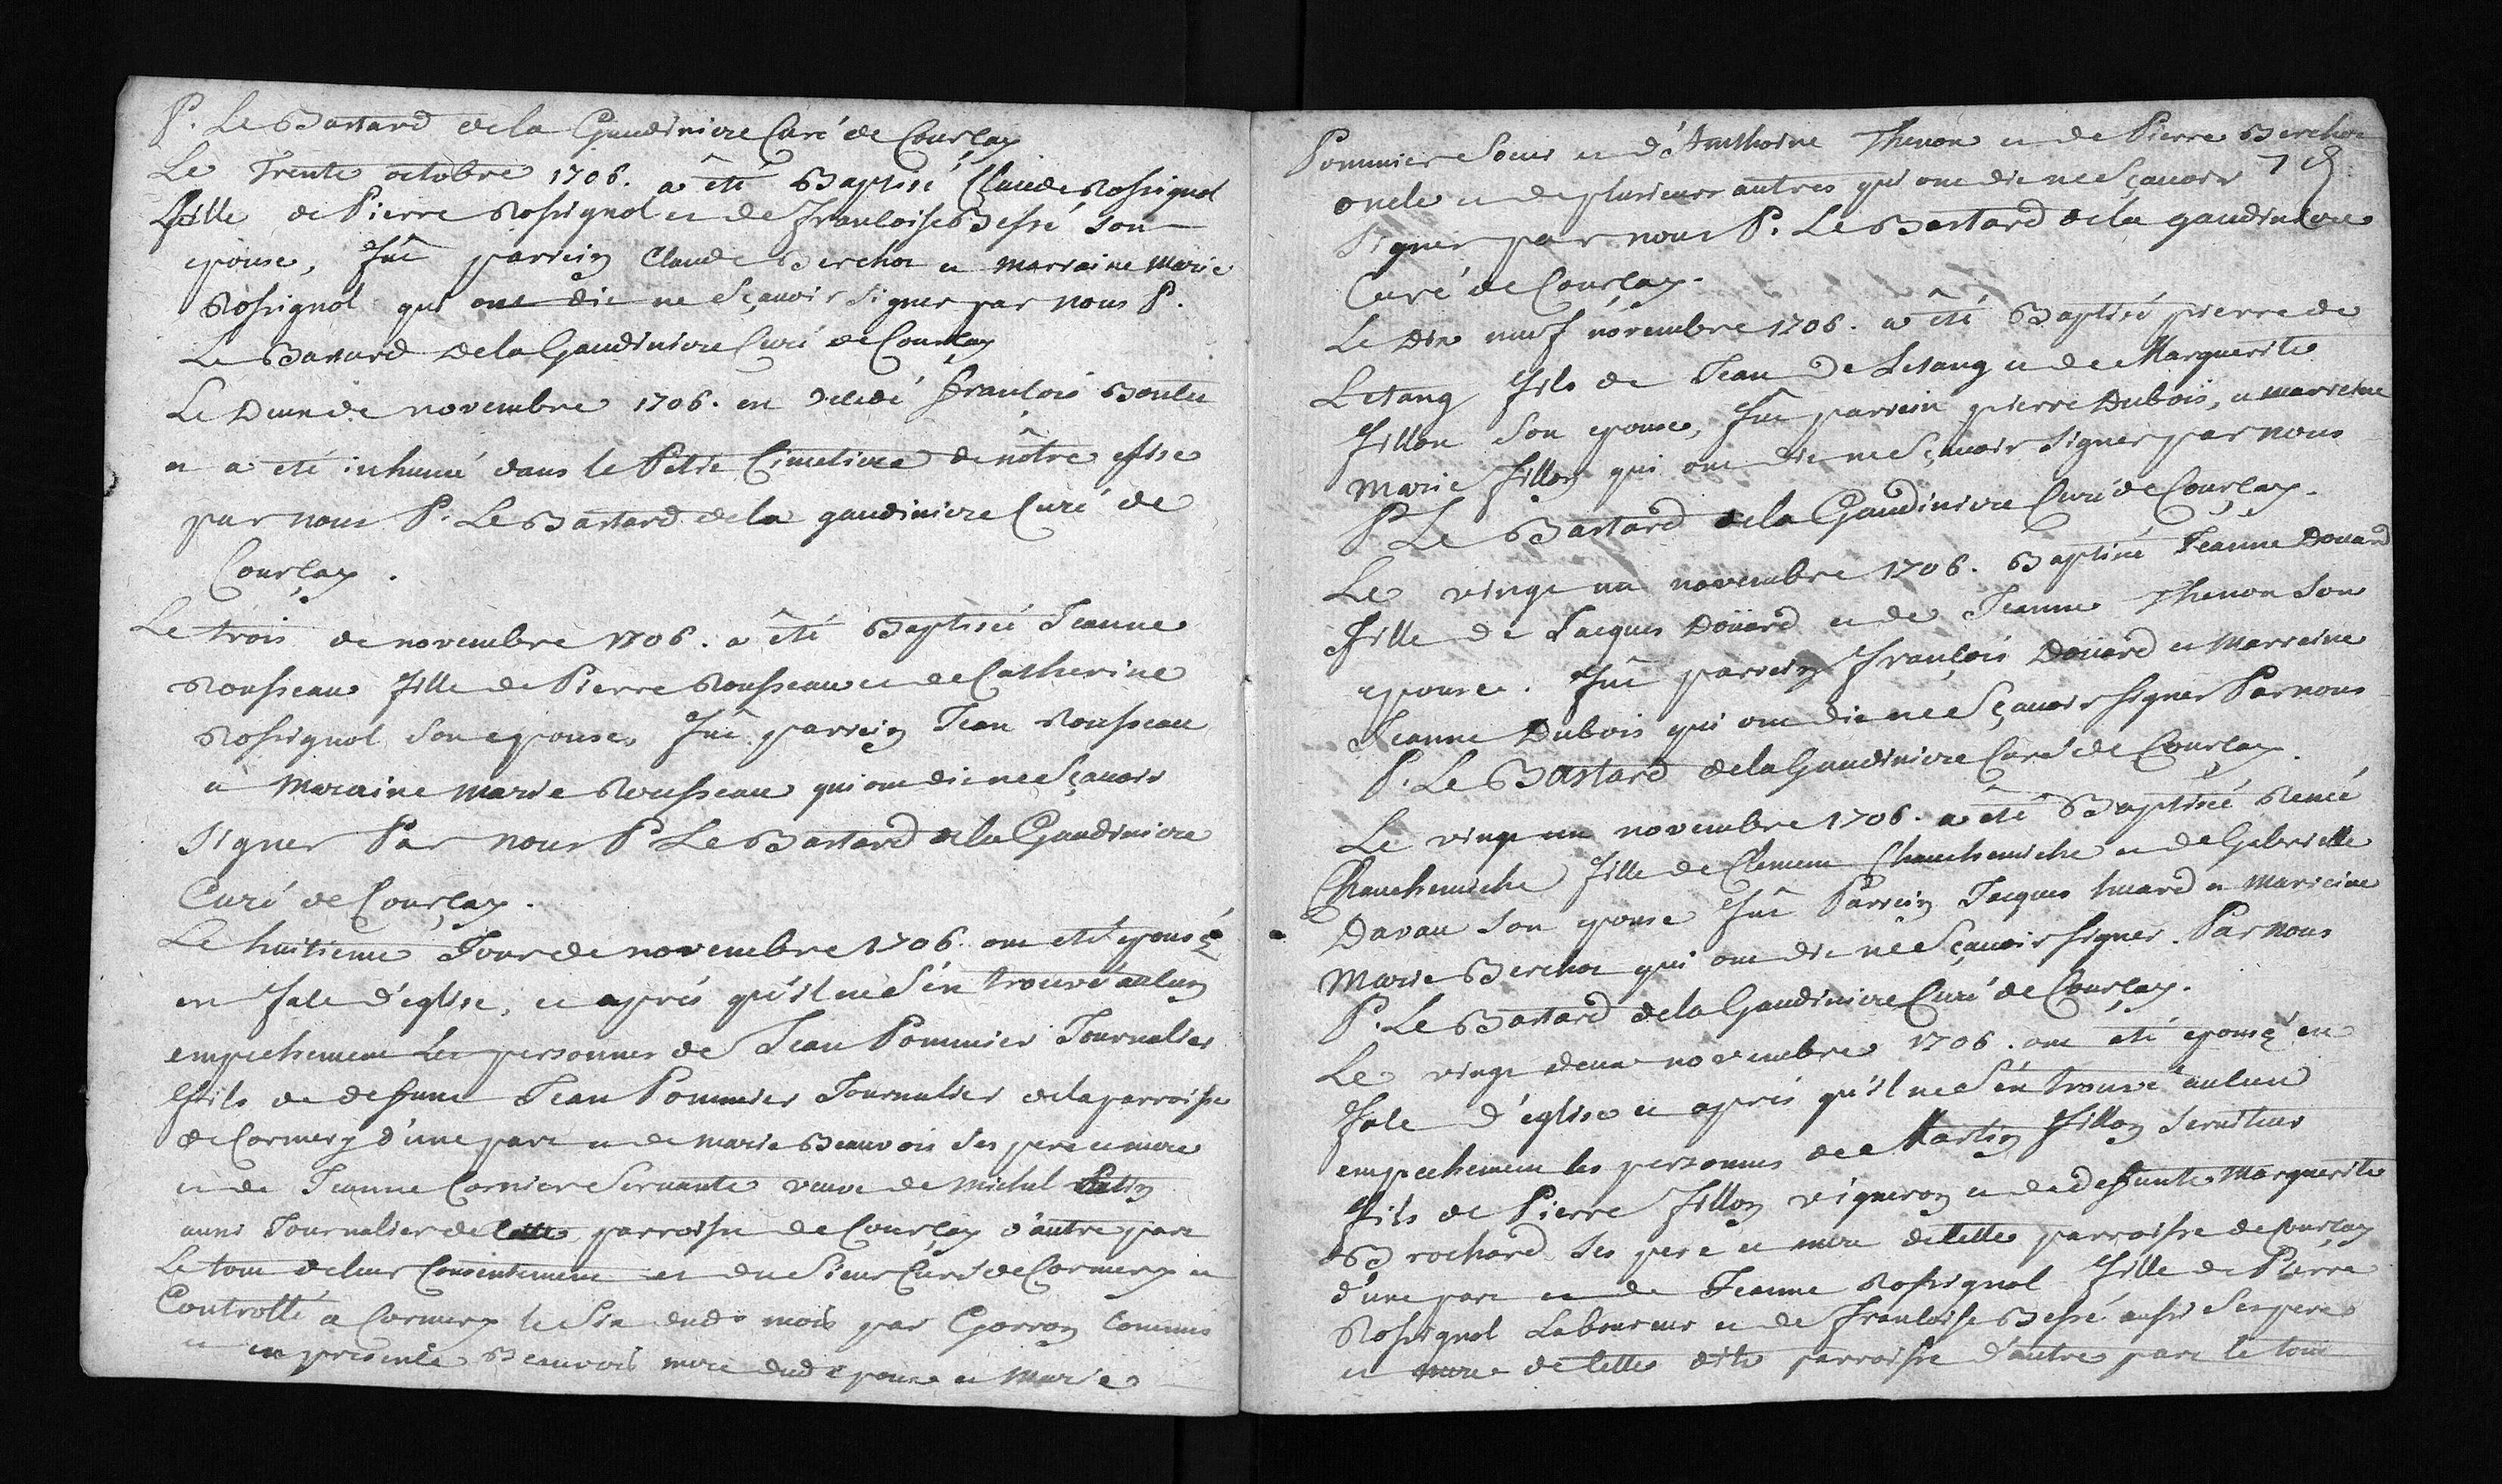 P. Le Bastard de la Gaudiniere Curé de Courçay
Le Trente octobre 1706. a êté Baptisé Claude Rossignol
fille de Pierre Rossignol et de francoise Bessé son
epouse, fût parrein Claude Berchot et marraine Marie
Rossignol qui ont dit ne sçavoir signer par nous P.
Le Bastard de la Gaudiniere Curé de Courçay
Le Deux de novembre 1706. est decedé françois
et a eté inhumé dans le Petit Cimetiere de nôtre eglise
par nous P. Le Bastard de la gaudiniere Curé de
Courçay.
Le trois de novembre 1706. a êté Baptiseé Jeanne
Rousseau fille de Pierre Rousseau et de Catherine
Rossignol son epouse, fût parrein Jean Rousseau
et Maraine Marie Rousseau qui ont dit ne sçavoir
signer Par nous P. Le Bastard de la Gaudiniere
Curé de Courçay.
Le huitieme Jour de novembre 1706. ont eté epousé
en face d'eglise, et aprés qu'il ne s'en trouvé aucun
empechement les personnes de Jean Pommier Journalier
fils de deffunt Jean Pommier Journalier de la parroisse
de Cormery d'une part et de Marie Beauvois ses pere et mere
et de Jeanne Cormier Servante veuve de Michel
aussi Journalier de cette parroisse de Courçay d'autre part
Le tout de leur Consentement et du Sieur Curé de Cormery et
Controllé a Cormery le six dud. mois par Gorron Commis
et en presence Beauvois mere dud epoux et Marie
Pommier Soeur et d'Anthoine Thenon et de Pierre Berchot
oncle et de plusieurs autres qui ont dit ne Sçauoir
signer par nous P. Le Bastard de la gaudiniere
Curé de Courçay.
Le Dix neuf novembre 1706. a êté Baptisé pierre de
Letang fils de Jean De Letang et de Marguerite
fillon Son epouse, fût parrein pierre Dubois, et marreine
Marie fillon qui ont dit ne Sçauoir signer par nous
P. Le Bastard de la Gaudiniere Curé de Courçay.
Le vingt un novembre 1706. Baptisé Jeanne Doüard
fille de Jacques Doüard et de Jeanne Thenon son
epouse. fût parrein françois Doüard et Marreine
Jeanne Dubois qui ont dit ne Sçauoir signer Par nous
P. Le Bastard de la Gaudiniere Curé de Courçay.
Le vingt un novembre 1706. a êté Baptiseé Reneé
fille de Clement et de Gabrielle
Davau son epouse fût Parrein Jacques huard et Mareine
Marie Berchot qui ont dit ne Sçauoir signer. Par nous
P. Le Bastard de la Gaudiniere Curé de Courçay.
Le vingt deux novembre 1706. ont êté epousé en
face d'eglise et aprés qu'il ne s'en trouvé aucun
empechement les personnes de Martin fillon Seruiteur
fils de Pierre fillon vigneron et de deffunte Marguerite
Brochard ses pere et mere de cette parroisse de Courçay
d'une part et de Jeanne Rossignol fille de Pierre
Rossignol Laboureur et de francoise Bessé aussi ses pere
et mere de cette dite parroisse d'autre part le tout